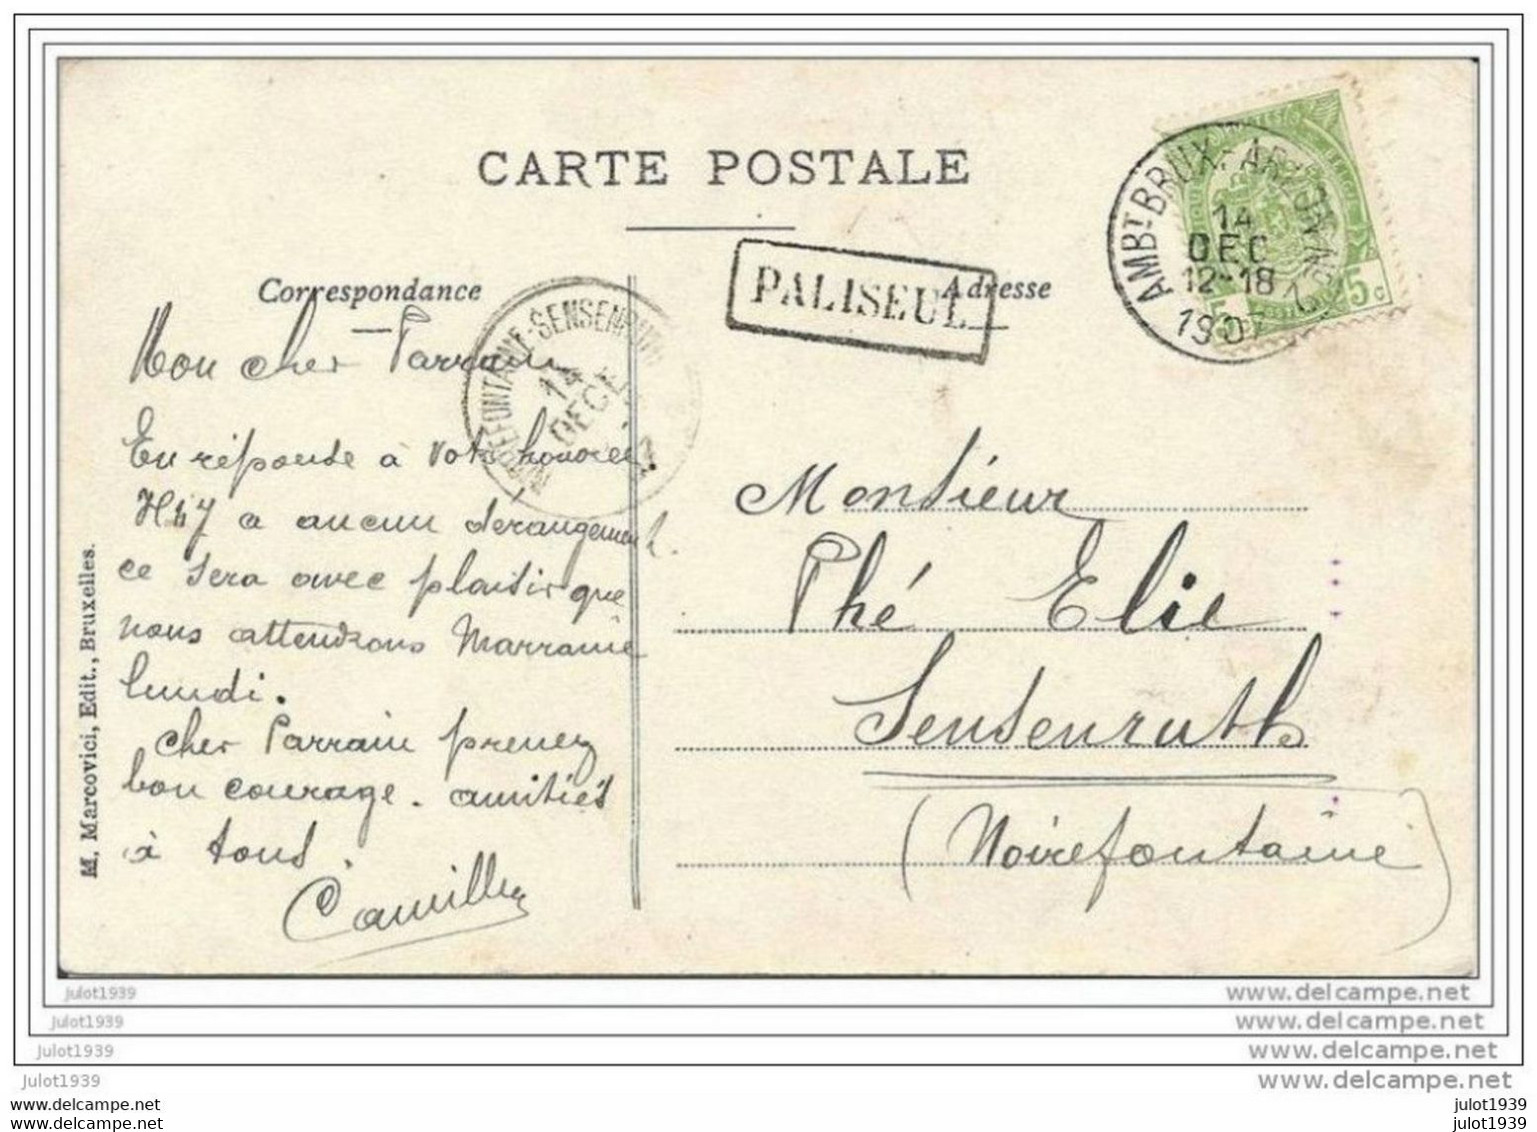 CARTE POSTALE
Correspondance
Adresse
PALISEUL
AMBT BRUX-ARLON
14
DEC
12-18
1907
5c
NOIREFONTAINE-SENSENRUTH
14
DECE
Mon cher Parrain
En réponse à votre honorée.
Il n'y a aucun dérangement.
ce sera avec plaisir que
nous attendrons Marraine
lundi.
cher Parrain prenez
bon courage. amitiés
à tous.
Camille
Monsieur
Phé Elie
Sensenruth
(Noirefontaine)
M. Marcovici, Edit., Bruxelles.
julot1939
www.delcampe.net
julot1939
www.delcampe.net
julot1939
www.delcampe.net
julot1939
www.delcampe.net
www.delcampe.net
julot1939
www.delcampe.net
julot1939